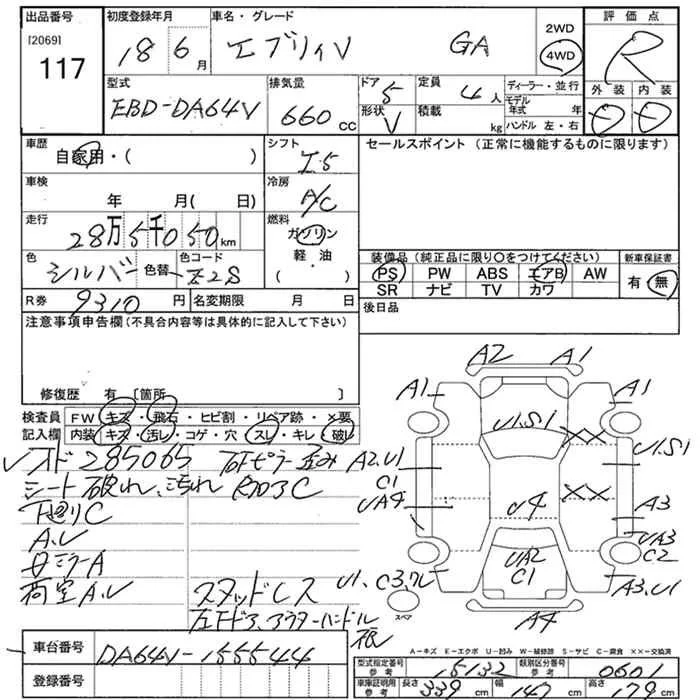 出品番号
[2069]
117
初度登録年月
18 6月
車名・グレード
エブリィV GA
2WD
4WD
評価点
R
外装 内装
型式
EBD-DA64V
排気量
660cc
ドア
5
形状
V
定員
4人
積載
kg
ディーラー・並行
モデル年式 年
ハンドル 左・右
車歴
自家用・( )
シフト
I5
セールスポイント(正常に機能するものに限ります)
車検
年 月( 日)
冷房
A/C
走行
28万5千050km
燃料
ガソリン
軽・油
( )
色
シルバー
色替
色コード
Z2S
装備品(純正品に限り○をつけてください)
新車保証書
PS PW ABS エアB AW
SR ナビ TV カワ
有・無
R券
9310円
名変期限 月 日
後日品
注意事項申告欄(不具合内容等は具体的に記入して下さい)
修復歴 有〔箇所 〕
検査員記入欄
FW キズ・飛石・ヒビ割・リペア跡・×要
内装 キズ・汚レ・コゲ・穴・スレ・キレ・破レ
285065
シート破れ、汚れ
下廻りC
A.U
ミラーA
荷室A.U
スタッドレス
A2 A1
A1 A1
U1.S1
A2.U1
C1
UA4
U4
U1.S1
A3
UA3
C2
UA2
C1
A3.U1
A4
スペア
A-キズ E-エクボ U-凹み W-補修跡 S-サビ C-腐食 ××-交換済
車台番号
DA64V-155544
登録番号
型式指定番号
参考
15132
類別区分番号
参考
0601
車庫証明用
参考
長さ 339cm
幅 147cm
高さ 179cm